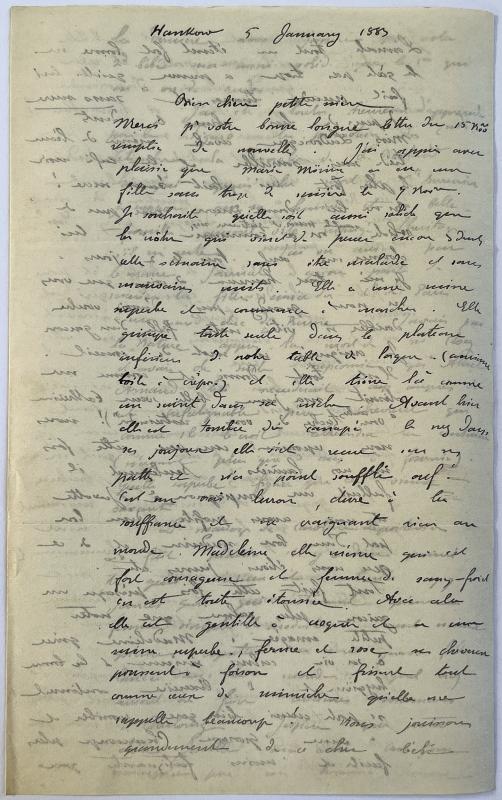 Hankow 5 January 1883
Bien chère petite mère
Merci pr votre bonne longue lettre du 15 Nov
remplie de nouvelles J'ai appris avec
plaisir que Marie a eu une
fille sans trop de misère le 9 Nov
Je souhaite qu'elle soit aussi solide que
la nôtre qui vient de percer encore 3 dents
cette semaine sans être malade et sans
mauvaises nuits Elle a une mine
superbe et commence à marcher Elle
grimpe toute seule dans le plateau
inférieur de notre table de laque (comme
) et elle trône là comme
un saint dans sa niche Avant hier
elle est tombée du canapé le nez dans
ses joujoux elle s'est remise sur ses
pattes et n'a point soufflé ouf!
C'est un vrai luron, dure à la
souffrance et ne craignant rien au
monde. Madeleine elle même qui est
fort courageuse et femme de sang-froid
en est toute étonnée Avec cela
elle est gentille à croquer et a une
mine superbe, ferme et rose, ses cheveux
poussent à foison et frisent tout
comme ceux de qu'elle me
rappelle beaucoup; nous jouissons
grandement de ce cher bébé